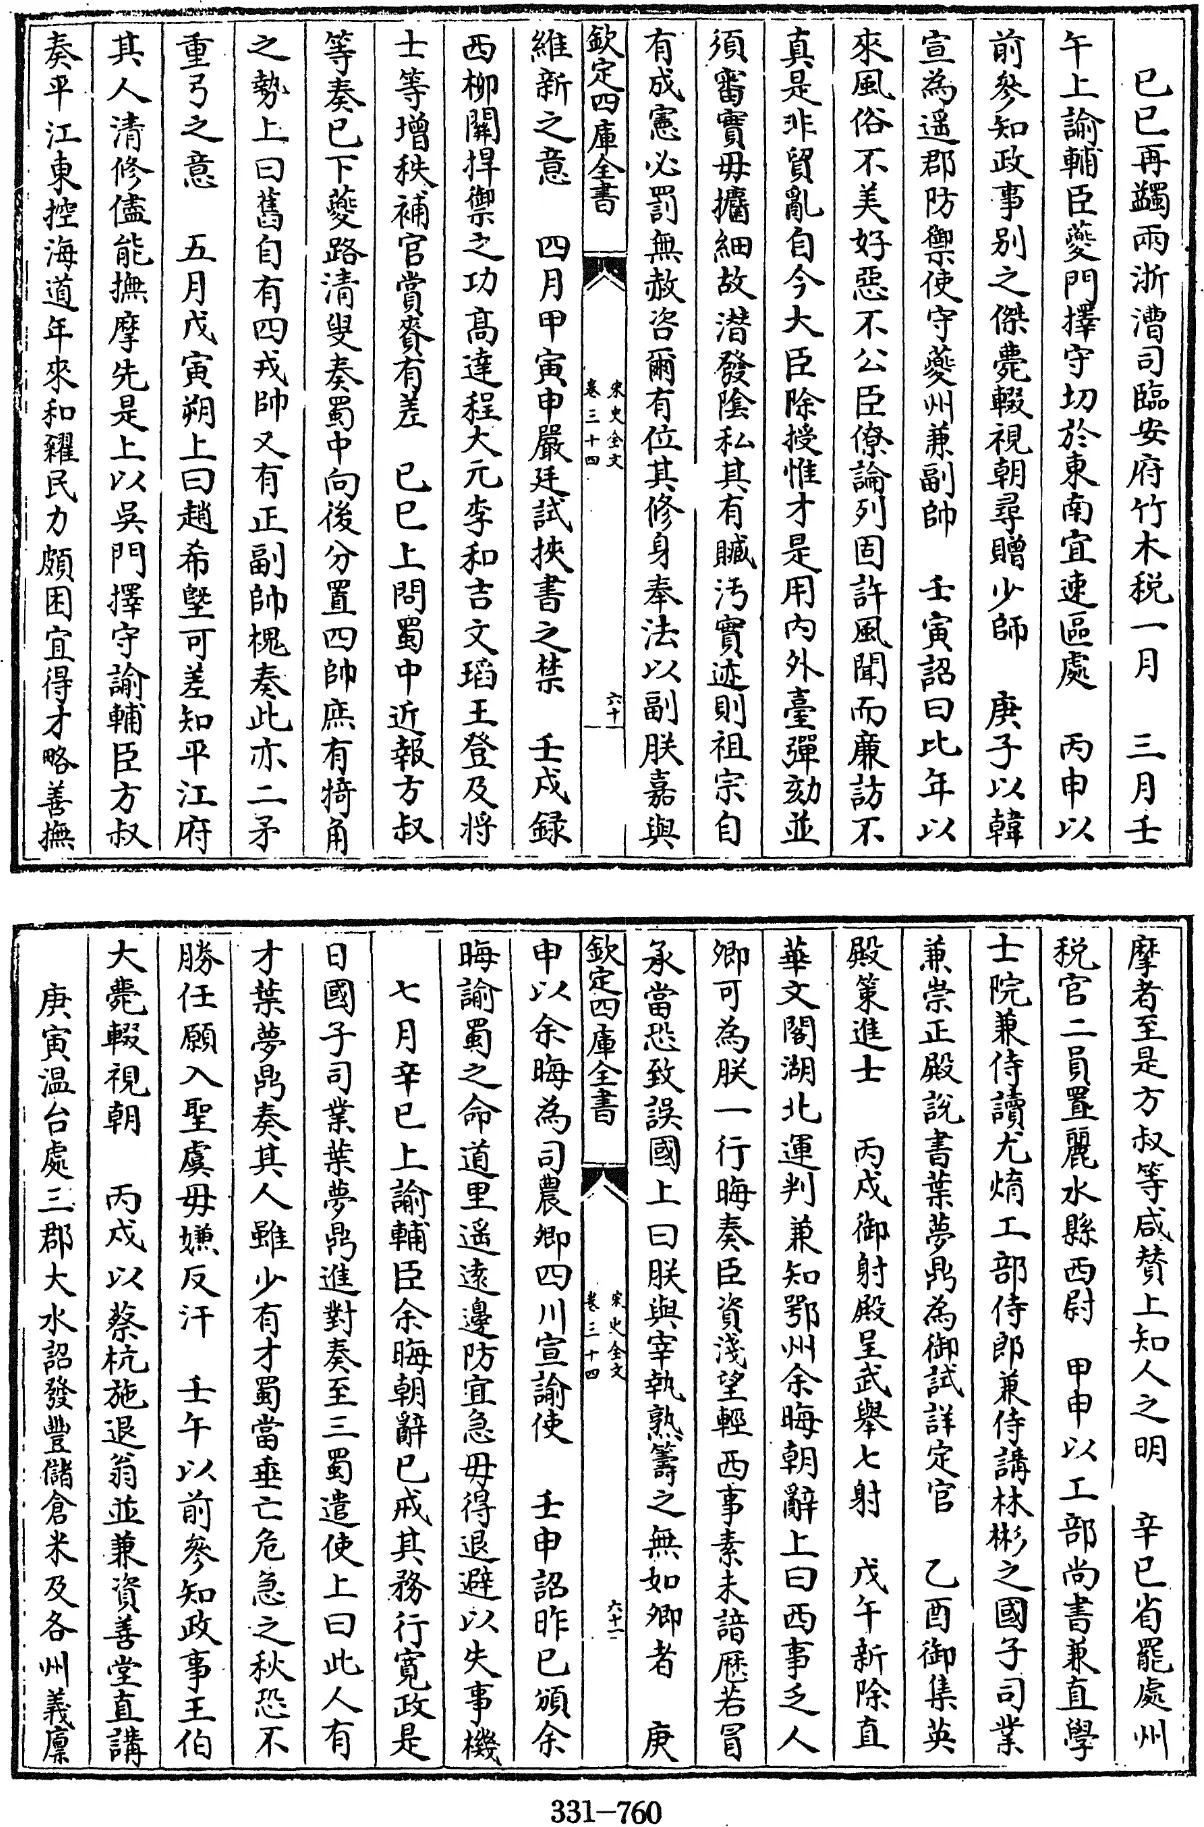 已巳再蠲兩浙漕司臨安府竹木税一月　三月壬
午上諭輔臣夔門擇守切於東南宜速區處　丙申以
前參知政事别之傑薨輟視朝尋贈少師　庚子以韓
宣為遥郡防禦使守夔州兼副帥　壬寅詔曰比年以
來風俗不美好惡不公臣僚論列固許風聞而廉訪不
真是非貿亂自今大臣除授惟才是用内外臺彈劾並
須審實毋攟細故潜發隂私其有贓汚實迹則祖宗自
有成憲必罰無赦咨爾有位其修身奉法以副朕嘉與
欽定四庫全書　宋史全文　卷三十四　六十一
維新之意　四月甲寅申嚴廷試挾書之禁　壬戌録
西柳關捍禦之功高達程大元李和吉文瑫王登及將
士等增秩補官賞賚有差　已巳上問蜀中近報方叔
等奏已下夔路清叟奏蜀中向後分置四帥庶有犄角
之勢上曰舊自有四戎帥又有正副帥槐奏此亦二矛
重弓之意　五月戊寅朔上曰趙希塈可差知平江府
其人清修儘能撫摩先是上以吳門擇守諭輔臣方叔
奏平江東控海道年來和糴民力頗困宜得才略善撫
摩者至是方叔等咸賛上知人之明　辛已省罷處州
税官二員置麗水縣西尉　甲申以工部尚書兼直學
士院兼侍讀尤焴工部侍郎兼侍講林彬之國子司業
兼崇正殿説書葉夢鼎為御試詳定官　乙酉御集英
殿策進士　丙戌御射殿呈武舉七射　戊午新除直
華文閣湖北運判兼知鄂州余晦朝辭上曰西事乏人
卿可為朕一行晦奏臣資淺望輕西事素未諳歴若冒
承當恐致誤國上曰朕與宰執熟籌之無如卿者　庚
欽定四庫全書　宋史全文　卷三十四　六十一
申以余晦為司農卿四川宣諭使　壬申詔昨已頒余
晦諭蜀之命道里遥遠邊防宜急毋得退避以失事機
七月辛已上諭輔臣余晦朝辭已戒其務行寛政是
日國子司業葉夢鼎進對奏至三蜀遣使上曰此人有
才葉夢鼎奏其人雖少有才蜀當垂亡危急之秋恐不
勝任願入聖虞毋嫌反汗　壬午以前參知政事王伯
大薨輟視朝　丙戌以蔡杭施退翁並兼資善堂直講
庚寅温台處三郡大水詔發豐儲倉米及各州義廪
331-760